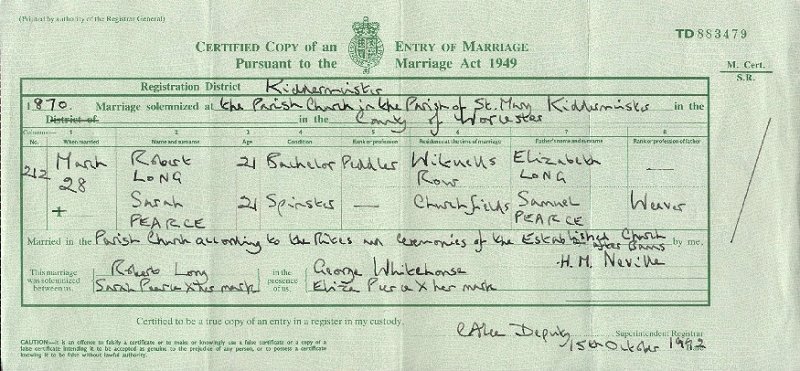 (Printed by authority of the Registrar General)
TD 883479
CERTIFIED COPY OF AN ENTRY OF MARRIAGE
Pursuant to the Marriage Act 1949
M. Cert.
S.R.
Registration District Kidderminster
1870. Marriage solemnized at the Parish Church in the Parish of St. Mary Kidderminster in the
District of in the County of Worcester
Columns:— 1 2 3 4 5 6 7 8
No. When married Name and surname Age Condition Rank or profession Residence at the time of marriage Father's name and surname Rank or profession of father
212 March 28 Robert LONG 21 Bachelor Peddler Row Elizabeth LONG —
+ Sarah PEARCE 21 Spinster — Churchfields Samuel PEARCE Weaver
Married in the Parish Church according to the Rites and ceremonies of the Established Church after Banns by me,
H. M. Neville
This marriage was solemnized between us, Robert Long Sarah Pearce X her mark in the presence of us, George Whitehouse Eliza Pierce X her mark
Certified to be a true copy of an entry in a register in my custody.
Deputy Superintendent Registrar
15th October 1992
CAUTION:—It is an offence to falsify a certificate or to make or knowingly use a false certificate or a copy of a
false certificate intending it to be accepted as genuine to the prejudice of any person, or to possess a certificate
knowing it to be false without lawful authority.